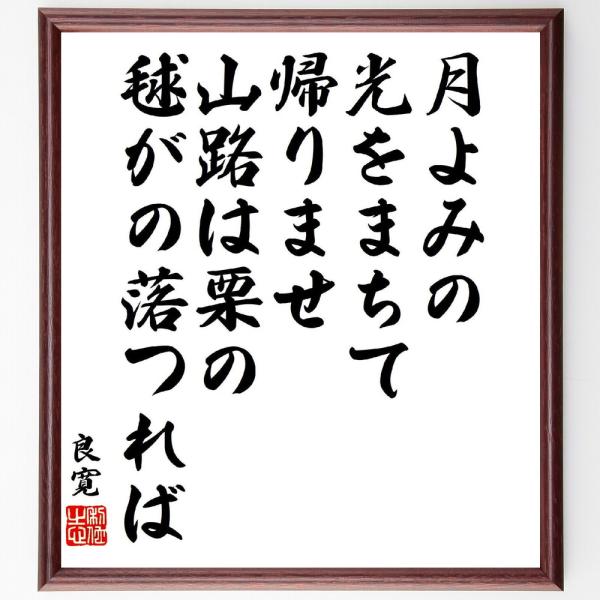 月よみの
光をまちて
帰りませ
山路は栗の
毬がの落つれば
良寛